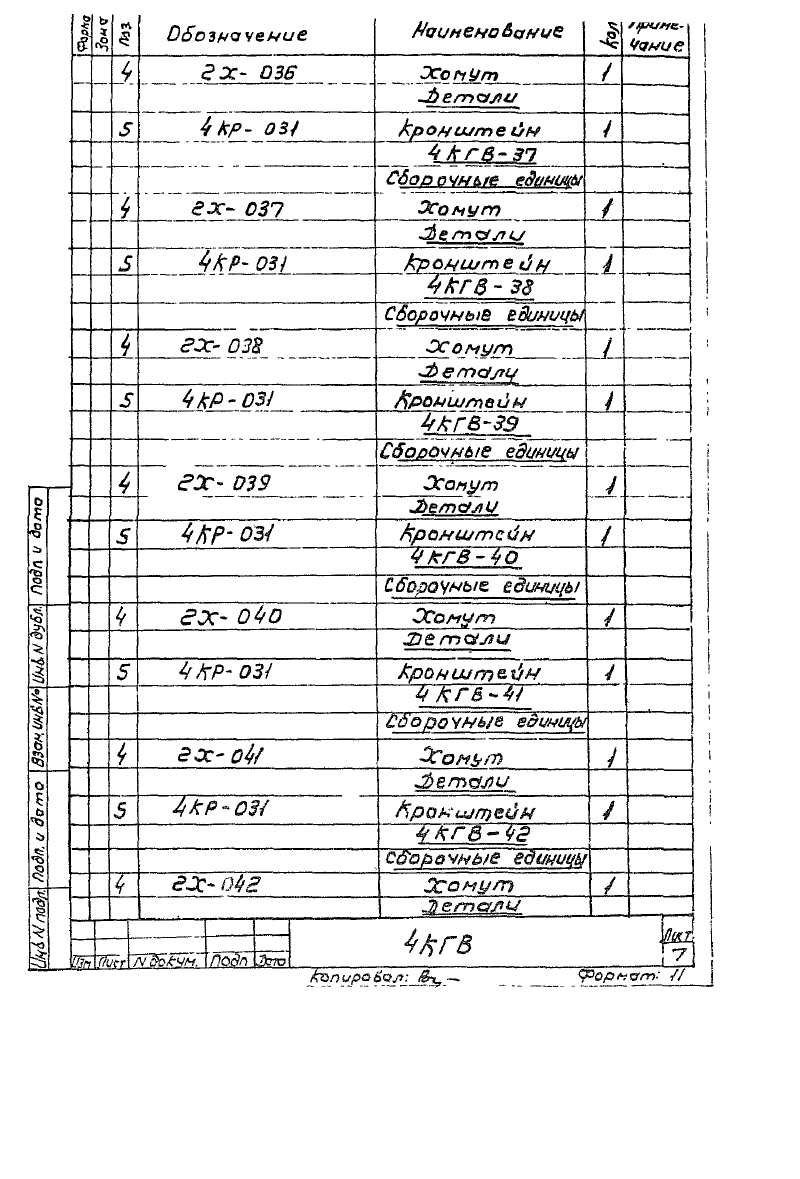 Форма Зона Поз. Обозначение Наименование Кол Приме-
чание
4 2Х-036 Хомут 1
Детали
5 4КР-031 Кронштейн 1
4КГВ-37
Сборочные единицы
4 2Х-037 Хомут 1
Детали
5 4КР-031 Кронштейн 1
4КГВ-38
Сборочные единицы
4 2Х-038 Хомут 1
Детали
5 4КР-031 Кронштейн 1
4КГВ-39
Сборочные единицы
4 2Х-039 Хомут 1
Детали
5 4КР-031 Кронштейн 1
4КГВ-40
Сборочные единицы
4 2Х-040 Хомут 1
Детали
5 4КР-031 Кронштейн 1
4КГВ-41
Сборочные единицы
4 2Х-041 Хомут 1
Детали
5 4КР-031 Кронштейн 1
4КГВ-42
Сборочные единицы
4 2Х-042 Хомут 1
Детали
Инв N подл. Подп. и дата Взам. инв. N° Инв N дубл. Подп и дата
4КГВ
Лист
7
Изм Лист N докум. Подп Дата
Копировал: Формат: 11